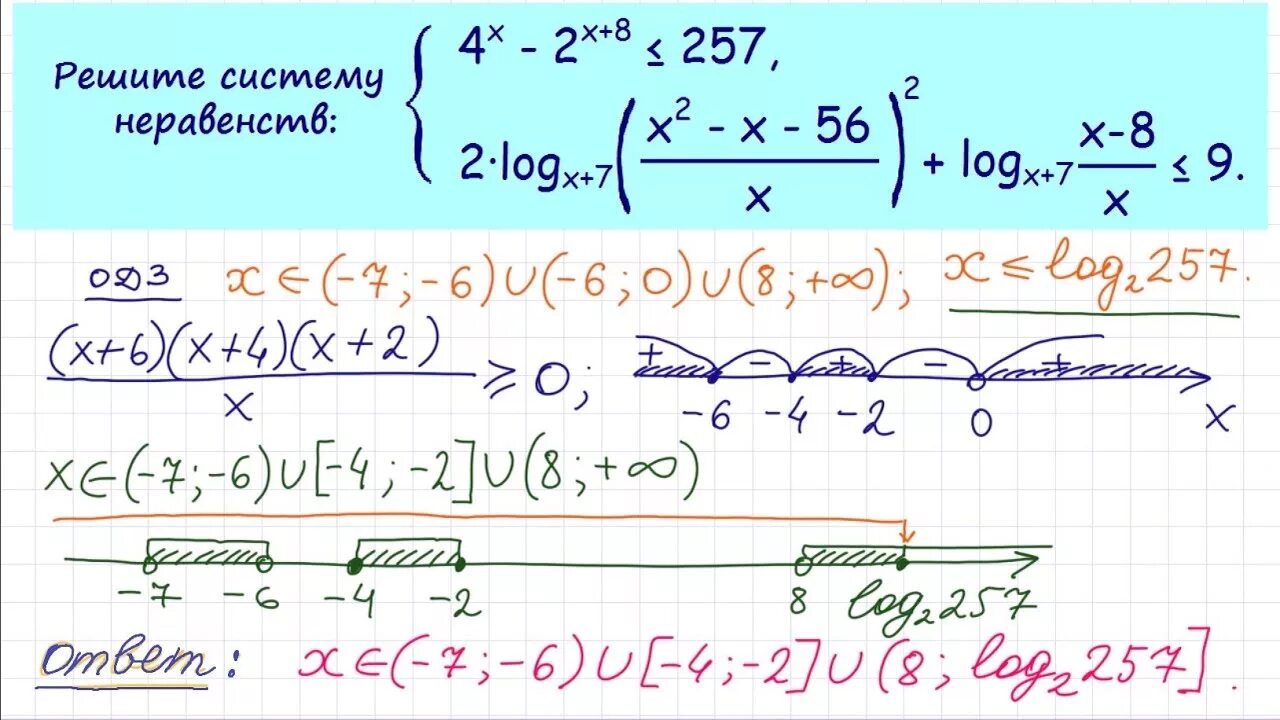 Решите систему неравенств:
4^x - 2^(x+8) ≤ 257,
2·log_(x+7)((x² - x - 56)/x)² + log_(x+7) (x-8)/x ≤ 9.
ОДЗ x ∈ (-7; -6) ∪ (-6; 0) ∪ (8; +∞); x ≤ log₂257.
(x+6)(x+4)(x+2)/x ≥ 0; + - + - +
-6 -4 -2 0 x
x ∈ (-7; -6) ∪ [-4; -2] ∪ (8; +∞)
-7 -6 -4 -2 8 log₂257
Ответ: x ∈ (-7; -6) ∪ [-4; -2] ∪ (8; log₂257].